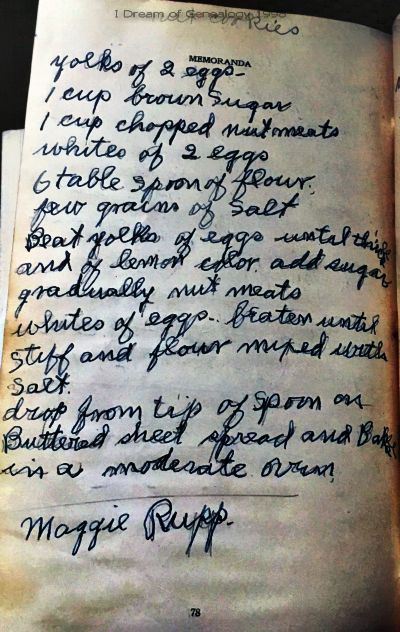 I Dream of Genealogy 1998
MEMORANDA
yolks of 2 eggs-
1 cup brown Sugar
1 cup chopped nutmeats
whites of 2 eggs
6 table Spoon of flour.
few grains of Salt
Beat yolks of eggs until thick
and of lemon color. add sugar
gradually nut meats
whites of eggs.. beaten until
stiff and flour mixed with
Salt.
drop from tip of Spoon on
Buttered sheet spread and Bake
in a moderate ovun,
Maggie Rupp.
78